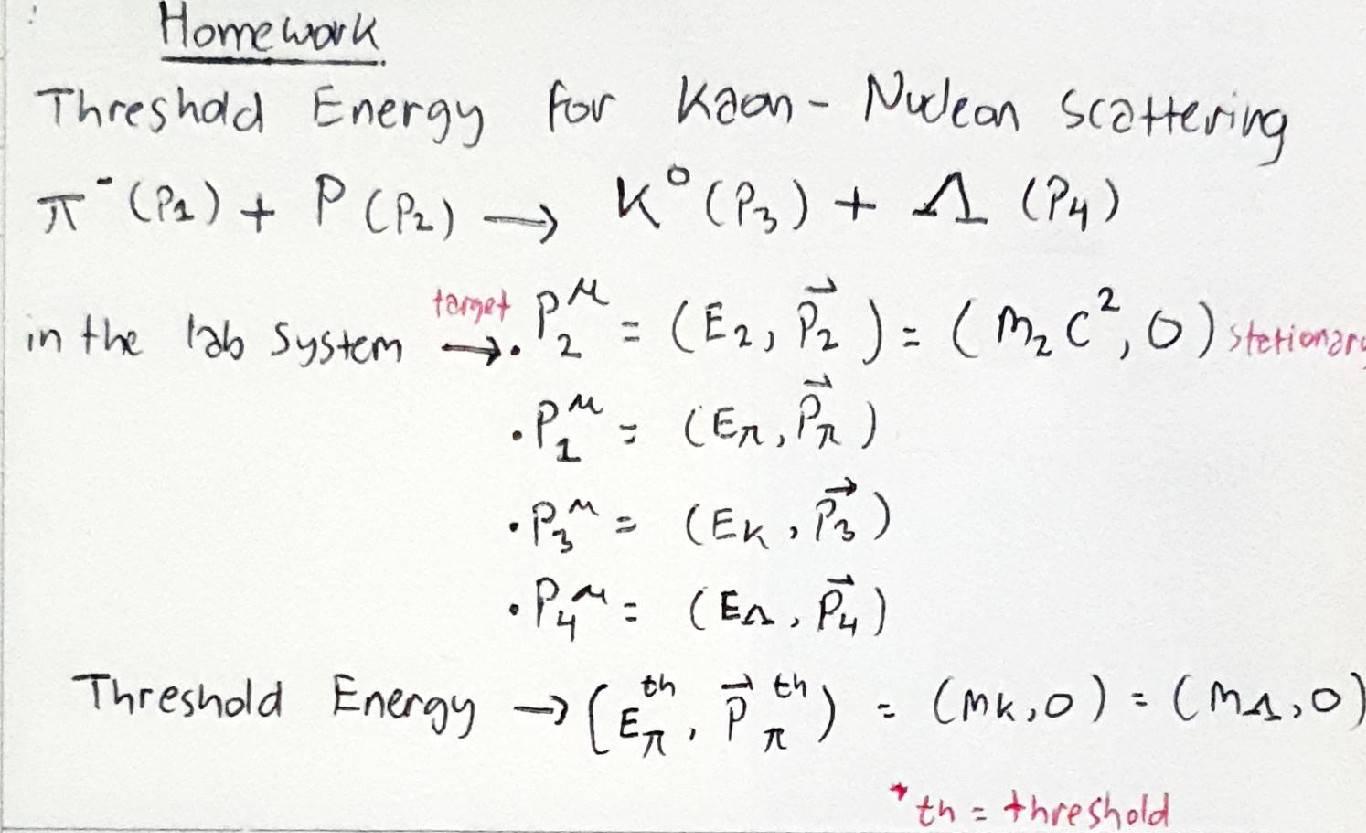 Homework
Threshold Energy for Kaon - Nucleon Scattering
π⁻ (P₁) + P (P₂) → K⁰ (P₃) + Λ (P₄)
in the lab system → target • P₂^μ = (E₂, P⃗₂) = (m₂c², 0) stetionary
• P₁^μ = (Eπ, P⃗π)
• P₃^μ = (E_K, P⃗₃)
• P₄^μ = (E_Λ, P⃗₄)
Threshold Energy → (Eπ^th, P⃗π^th) = (m_K, 0) = (m_Λ, 0)
* th = threshold